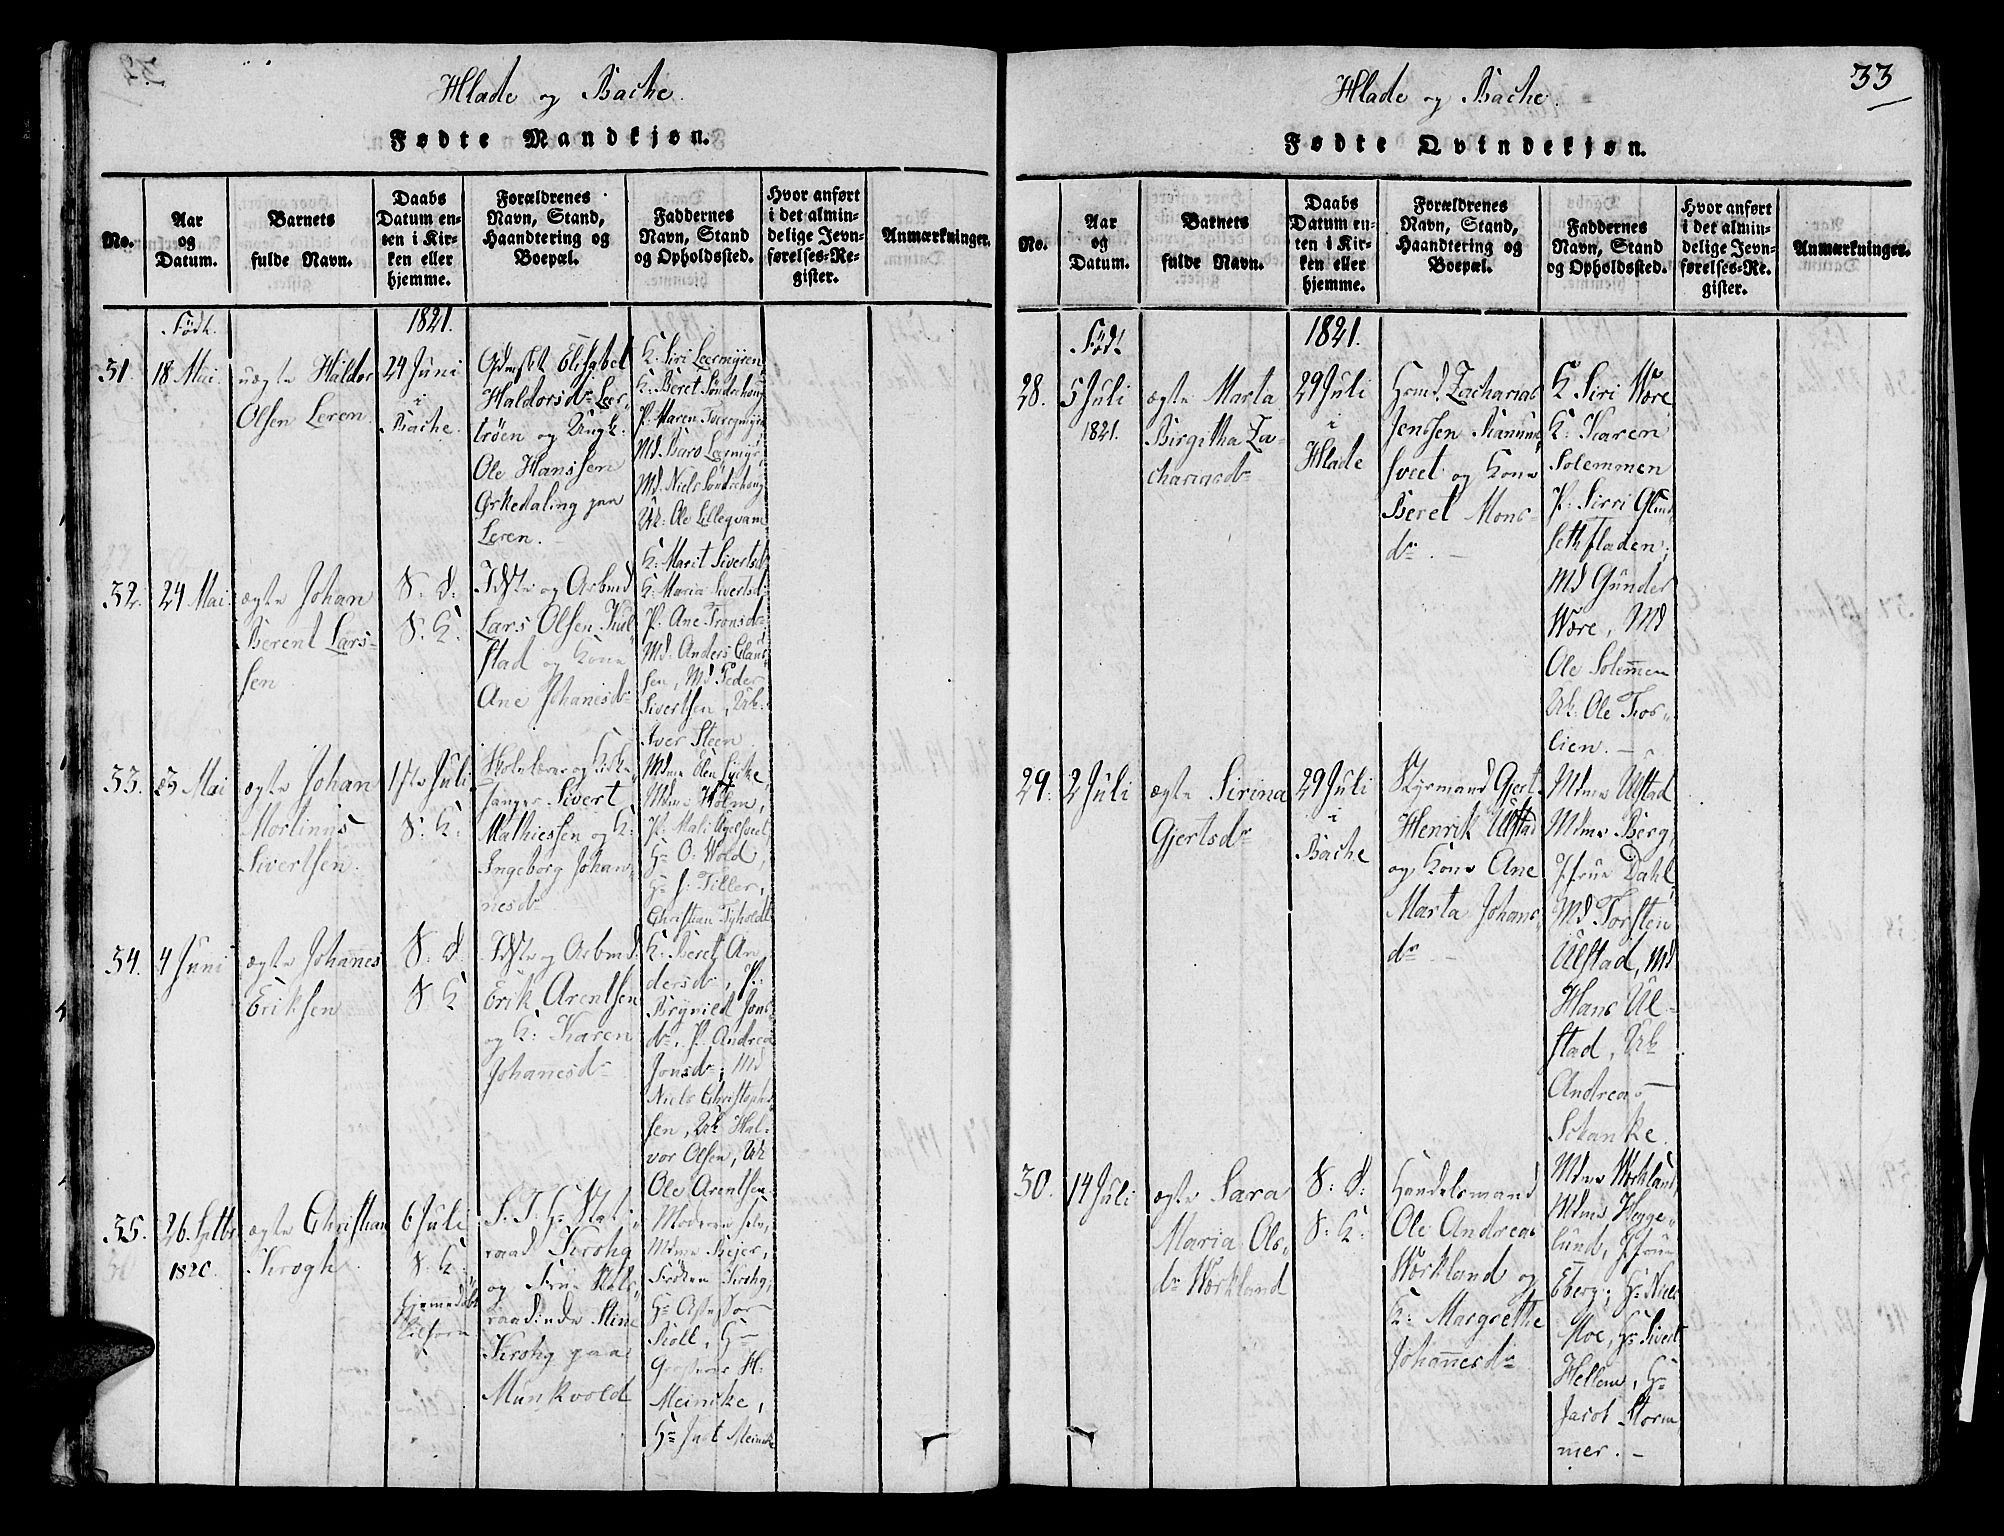 Hlade og Bache.
Fødte Mandkjøn.
No.
Aar
og
Datum.
Barnets
fulde Navn.
Daabs
Datum en-
ten i Kir-
ken eller
hjemme.
Forældrenes
Navn, Stand,
Haandtering og
Boepæl.
Faddernes
Navn, Stand
og Opholdssted.
Hvor anført
i det almin-
delige Jevn-
førelses-Re-
gister.
Anmærkninger.
Födt.
1821.
31.
18 Mai.
uægte Haldor
Olsen Leren.
24 Juni
i
Bache.
Elisabet
Haldorsdr Leer-
tröen og Ungk:
Ole Hanssen
Ørkedaling paa
Leren.
K. Siri Leermyren,
K. Beret Söndrehoug
P. Maren
Md. Baro Leermyr,
Md. Niels Söndrehoug
Uk: Ole Lillegvam
32.
24 Mai.
ægte Johan
Berent Lars-
sen
S. d.
S. K.
Idste og Arbmd
Lars Olsen
stad og Kone
Ane Johanesdr
K: Marit Sivertsdr
K: Maria Sivertsdr
P. Ane Tronsdr
Md. Anders Claus-
sen, Md Peder
Sivertsen, Uk:
Iver Steen
33.
23 Mai
ægte Johan
Martinus
Sivertsen.
17de Juli
S. K:
Skolelærer og Kirke-
sanger Sivert
Mathiessen og K:
Ingeborg Johan-
nesdr
Mdme Olen
Mdme Holm,
P. Mali Ugelsveet,
Hr O: Wold,
Hr J. Tiller,
Christian Tyholdt
34.
4 Juni
ægte Johannes
Eriksen
S. d.
S. K
Idste og Arbmd.
Erik Arentsen
og K: Karen
Johanesdr
K. Beret An
dersdr, P.
Brynild Jons
dr, P. Andrea
Jonsdr; Md
Niels Christoph
sen, Uk Hal-
vor Olsen, Uk
Ole Arentsen.
35.
26. Septbr
1820.
ægte Christian
Krogh.
6 Juli
S. K:
Hjemmedöbt
S. T. Hr Stats
raad Krohg
og Frue Stats
raadinde Stine
Krohg paa
Munkvold
Moderen selv,
Mdme Bejer,
Fröken Krohg,
Hr
Stoll, Hr
H.
Meincke,
Hr Jast Meincke
33
Hlade og Bache.
Fødte Qvindekjøn.
No.
Aar
og
Datum.
Barnets
fulde Navn.
Daabs
Datum en-
ten i Kir-
ken eller
hjemme.
Forældrenes
Navn, Stand,
Haandtering og
Boepæl.
Faddernes
Navn, Stand
og Opholdssted.
Hvor anført
i det almin-
delige Jevn-
førelses-Re-
gister.
Anmærkninger.
Födt
1821.
28.
5 Juli
1821.
ægte Marta
Birgitha Za-
chariasdr
29 Juli
i
Hlade
Hsmd. Zacharias
Jenssen
sveet og Kone
Beret Mons-
dr.
K Siri Være
K: Karen
Solemmen
P: Sirri
sethfladen;
Md Gunder
Være, Md
Ole Solemmen
Uk. Ole Tros-
lien.
29.
2 Juli
ægte Sirina
Gjertsdr
29 Juli
i
Bache
Styrmand Gjert
Henrik Ulstad
og Kone Ane
Marta Johans
dr
Mdme Ulstad
Mdme Berg,
Jfrue Dahl,
Md Torsten
Ulstad, Md
Hans Ul-
stad, Uk
Andreas
Schanke.
30.
14 Juli
ægte Sara
Maria Ols-
dr Workland
S: d:
S: K:
Handelsmand
Ole Andreas
Workland og
K: Margrethe
Johannesdr
Mdme Workland,
Mdme Hegge-
lund, Jfrue
Eberg; Hr Niels
Moe, Hr Sivert
Hellem, Hr
Jacob Storm
mer.